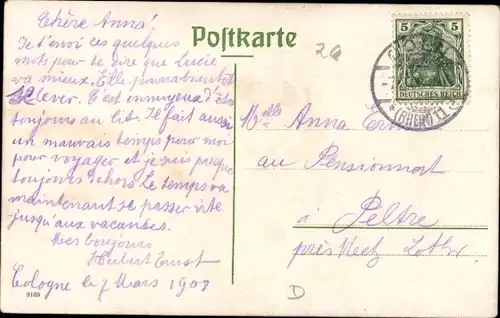 Chère Anna!
Je t'envoi ces quelques
mots pour te dire que Lucie
va mieux. Elle pourra bientôt
se lever. C'est ennuyeux d'être
toujours au lit. Il fait aussi
un mauvais temps pour moi
pour voyager et je suis presque
toujours dehors. Le temps va
maintenant se passer vite
jusqu'aux vacances.
Mes bonjours
Hubert Ernst
Cologne le 7 Mars 1908
9169
Postkarte
2a
5 5
DEUTSCHES REICH
(RHEIN) 11
Melle Anna Ernst
au Pensionnat
à Peltre
près Metz Lothr.
D